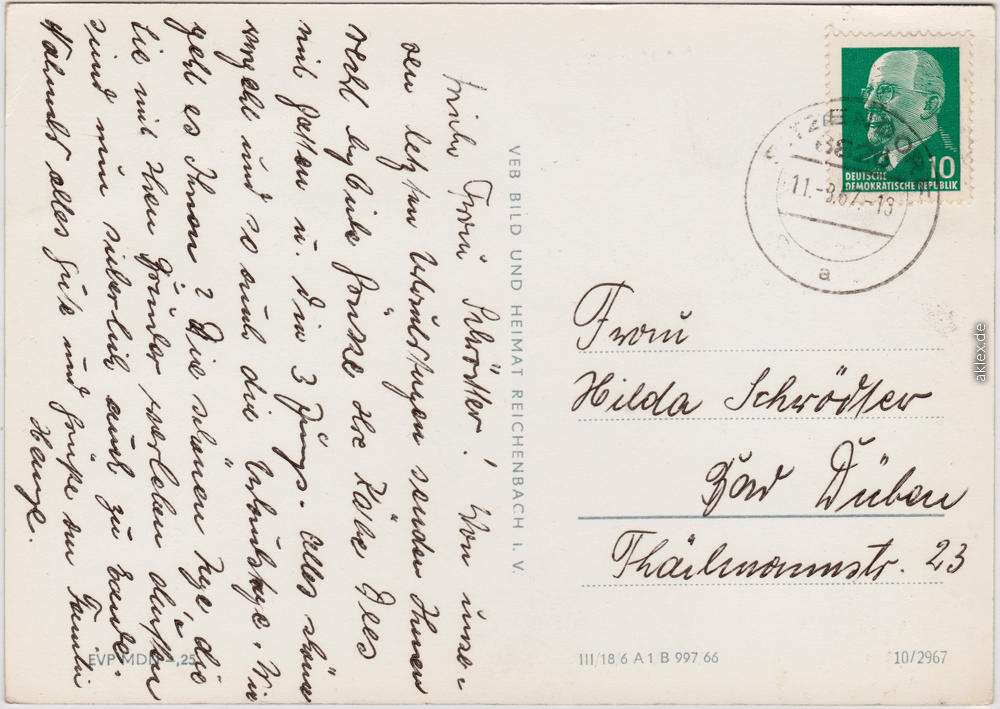 Liebe Frau Schrödter! Von unse-
ren letzten Urlaubstagen senden Ihnen
recht herzliche Grüsse Ihre Käte Gees
mit Gatten u. die 3 Jungs. Alles schöne
vergeht und so auch die Urlaubstage. Wie
geht es Ihnen? Die schönen Tage, die
Sie mit Ihren Kinder verleben durften
sind nun sicherlich auch zu Ende.
Nochmals alles gute und Grüße an Familie
Heinze.
VEB BILD UND HEIMAT REICHENBACH I. V.
EVP MDN -,25
10
DEUTSCHE
DEMOKRATISCHE REPUBLIK
11.-8.67.-18
a
Frau
Hilda Schrödter
Bad Düben
Thälmannstr. 23
III/18/6 A 1 B 997/66
10/2967
aklex.de